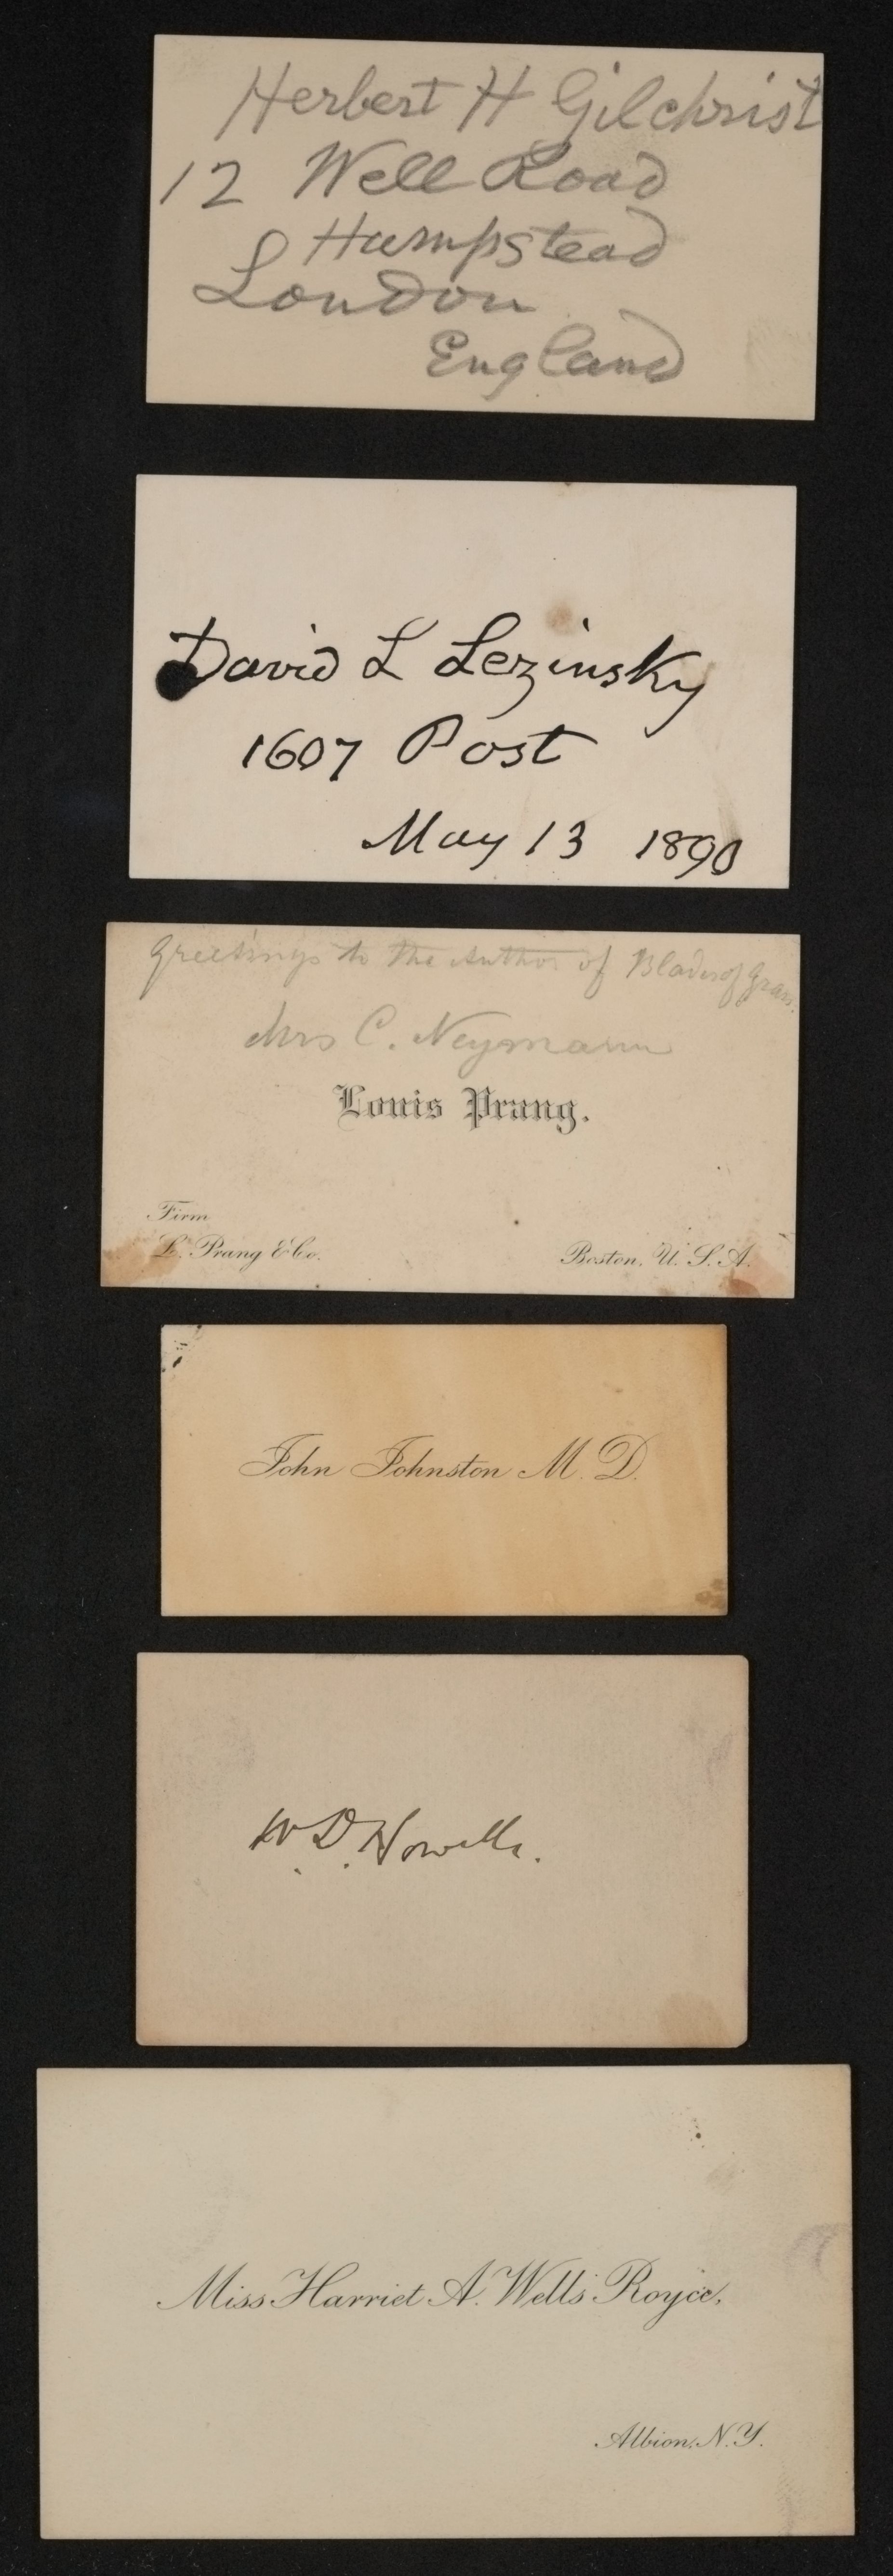 Herbert H Gilchrist
12 Well Road
Hampstead
London
England
David L Lezinsky
1607 Post
May 13 1890
Greetings to the Author of Blades of Grass.
Mrs C. Neymann
Louis Prang.
Firm
L. Prang & Co.
Boston, U.S.A.
John Johnston M.D.
W.D. Howells.
Miss Harriet A. Wells Royce,
Albion, N.Y.